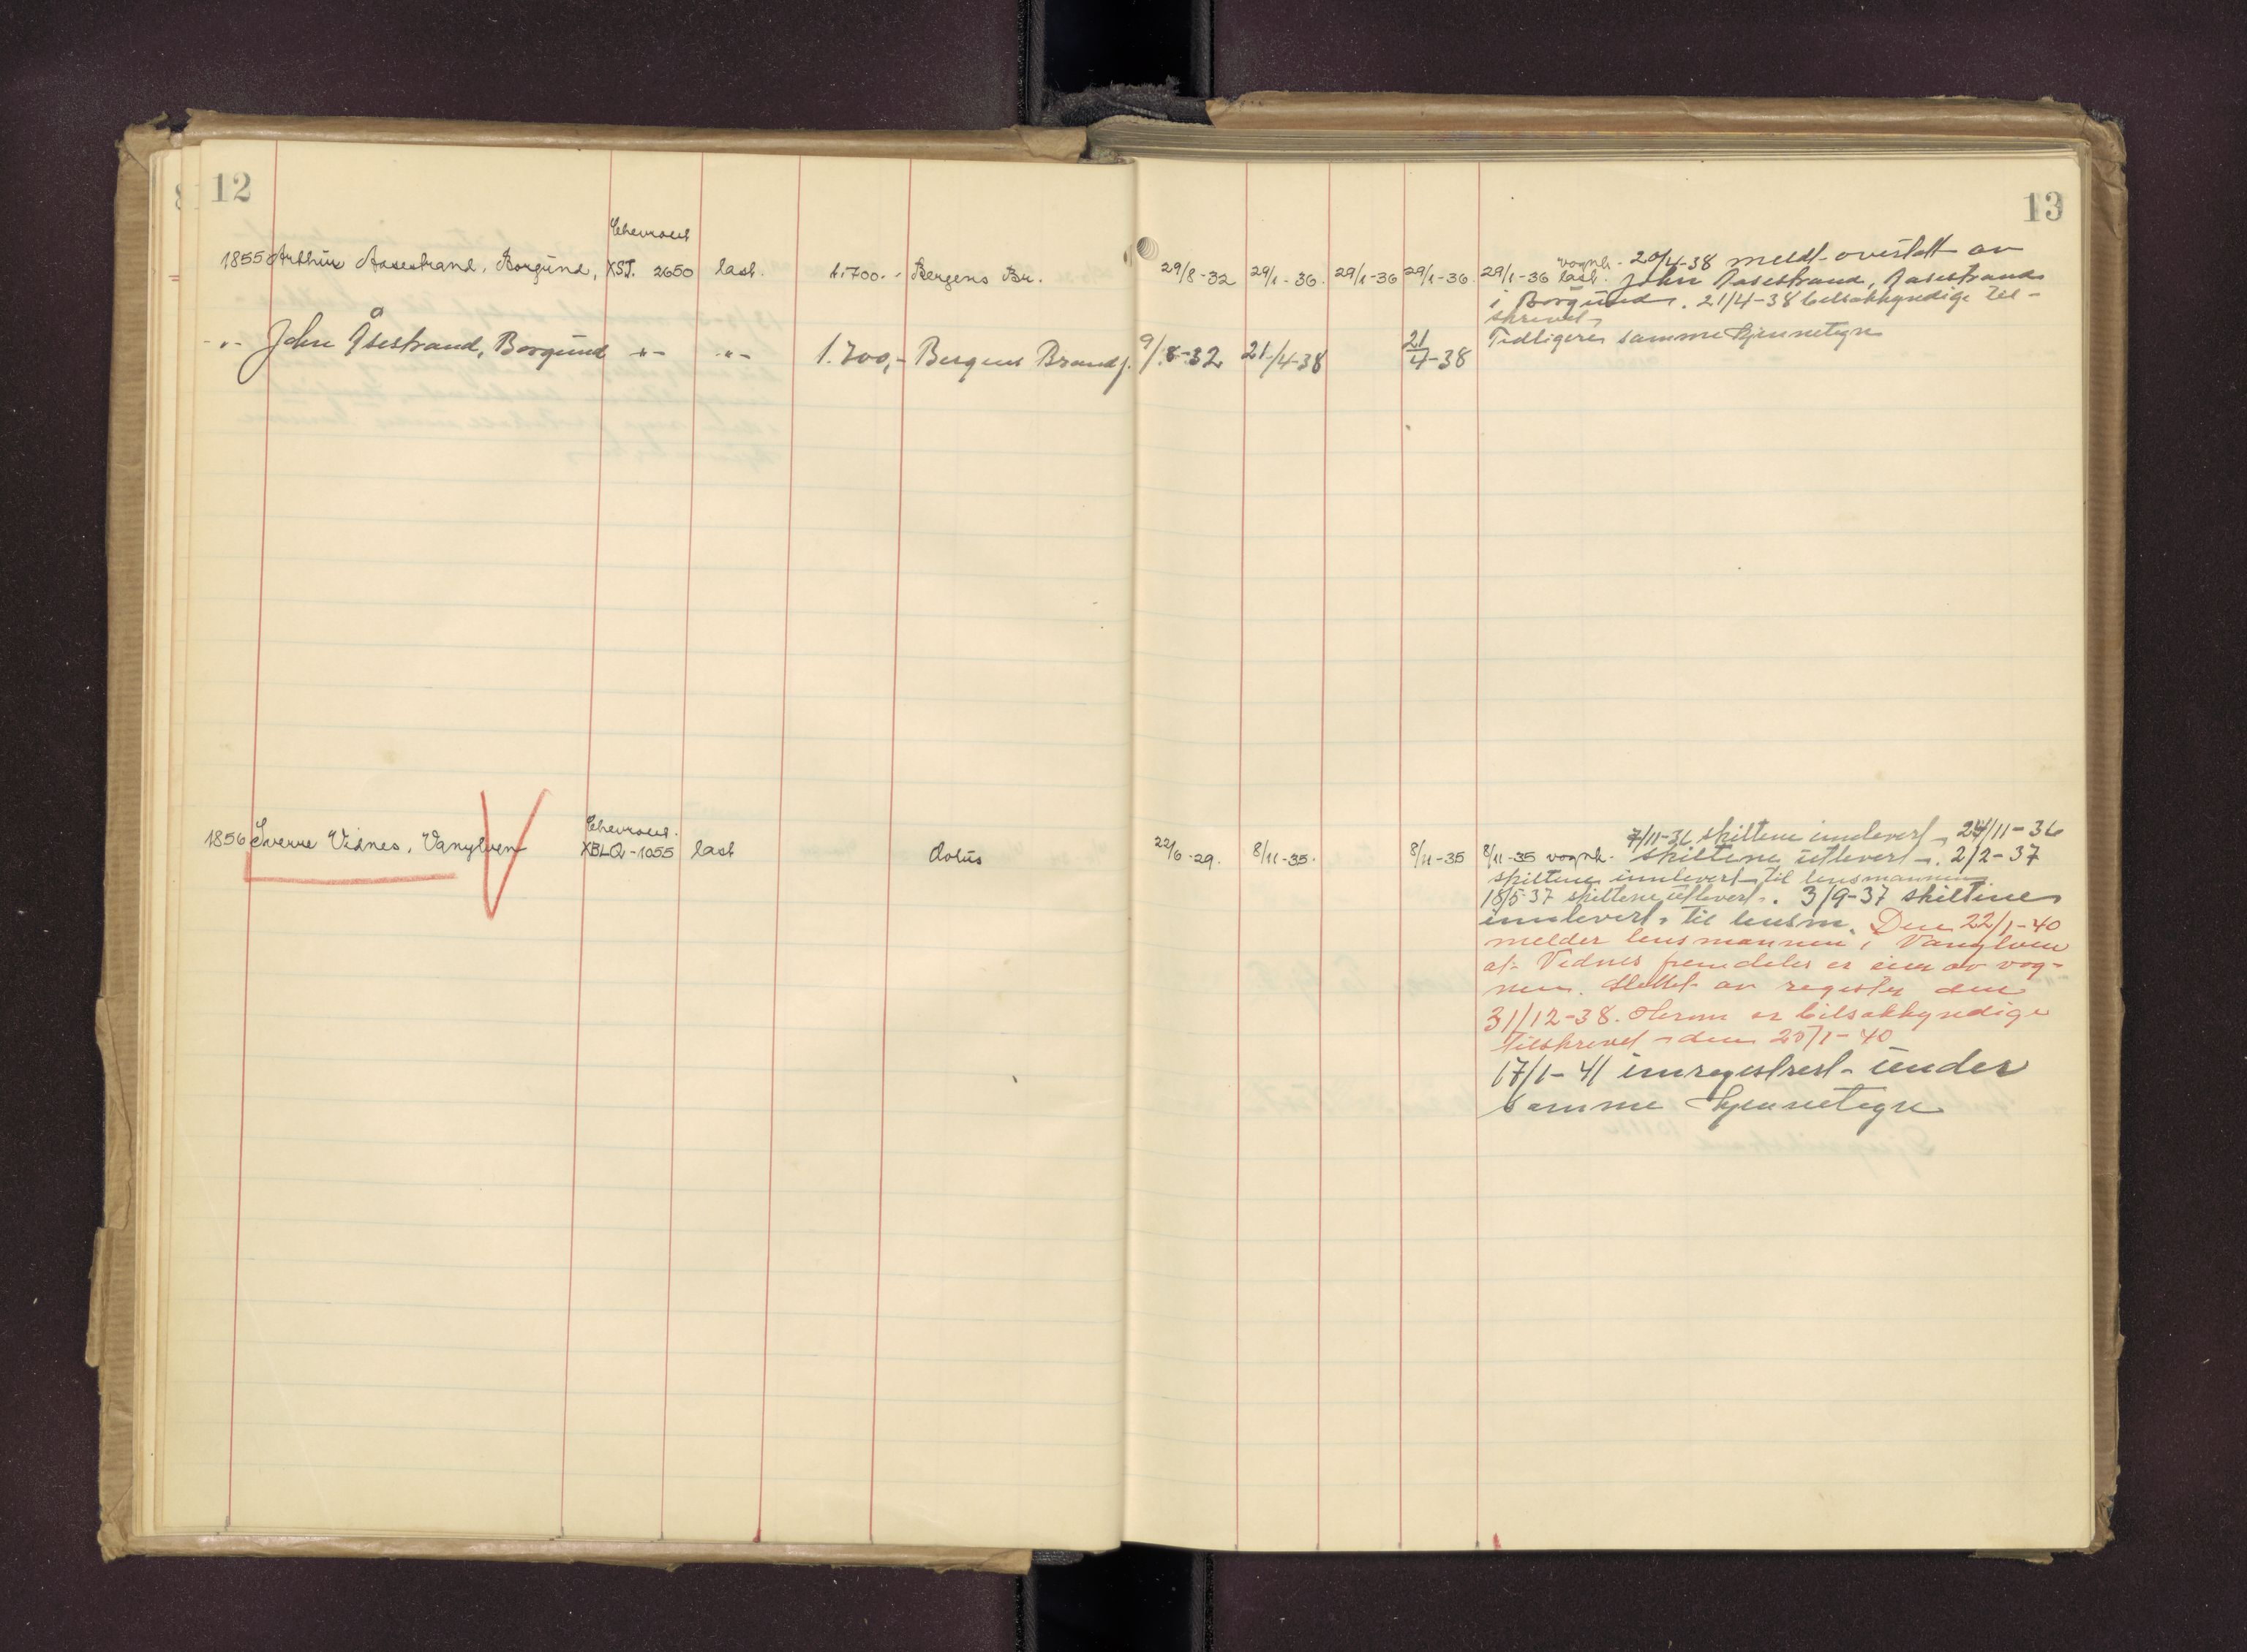 12
13
Chevrolet
1855 Arthur Aasestrand, Borgund, XST. 2650 last. 1.700.- Bergens Br. 29/8-32 29/1-36. 29/1-36 29/1-36. 29/1-36 vognk. last. 20/4-38 meldt overtatt av
John Aasestrand, Aasestrand
i Borgund. 21/4-38 bilsakkyndige til-
skrevet.
-"- John Åsestrand, Borgund -"- -"- 1.700,- Bergens Brandf. 9/8-32 21/4-38 21/4-38 Tidligere samme kjennetegn
Chevrolet.
1856 Sverre Vidnes, Vanylven XBLQ-1055 last Aolus 22/6-29. 8/11-35. 8/11-35 8/11-35 vognk. 7/11-36 skiltene innlevert, 24/11-36
skiltene utlevert. 2/2-37
skiltene innlevert til lensmannen
18/5-37 skiltene utlevert. 3/9-37 skiltene
innlevert til lensm. Den 22/1-40
melder lensmannen i Vanylven
at Vidnes fremdeles er eier av vog-
nen. Slettet av register den
31/12-38. Herom er bilsakkyndige
tilskrevet den 25/1-40
17/1-41 innregistrert under
samme kjennetegn